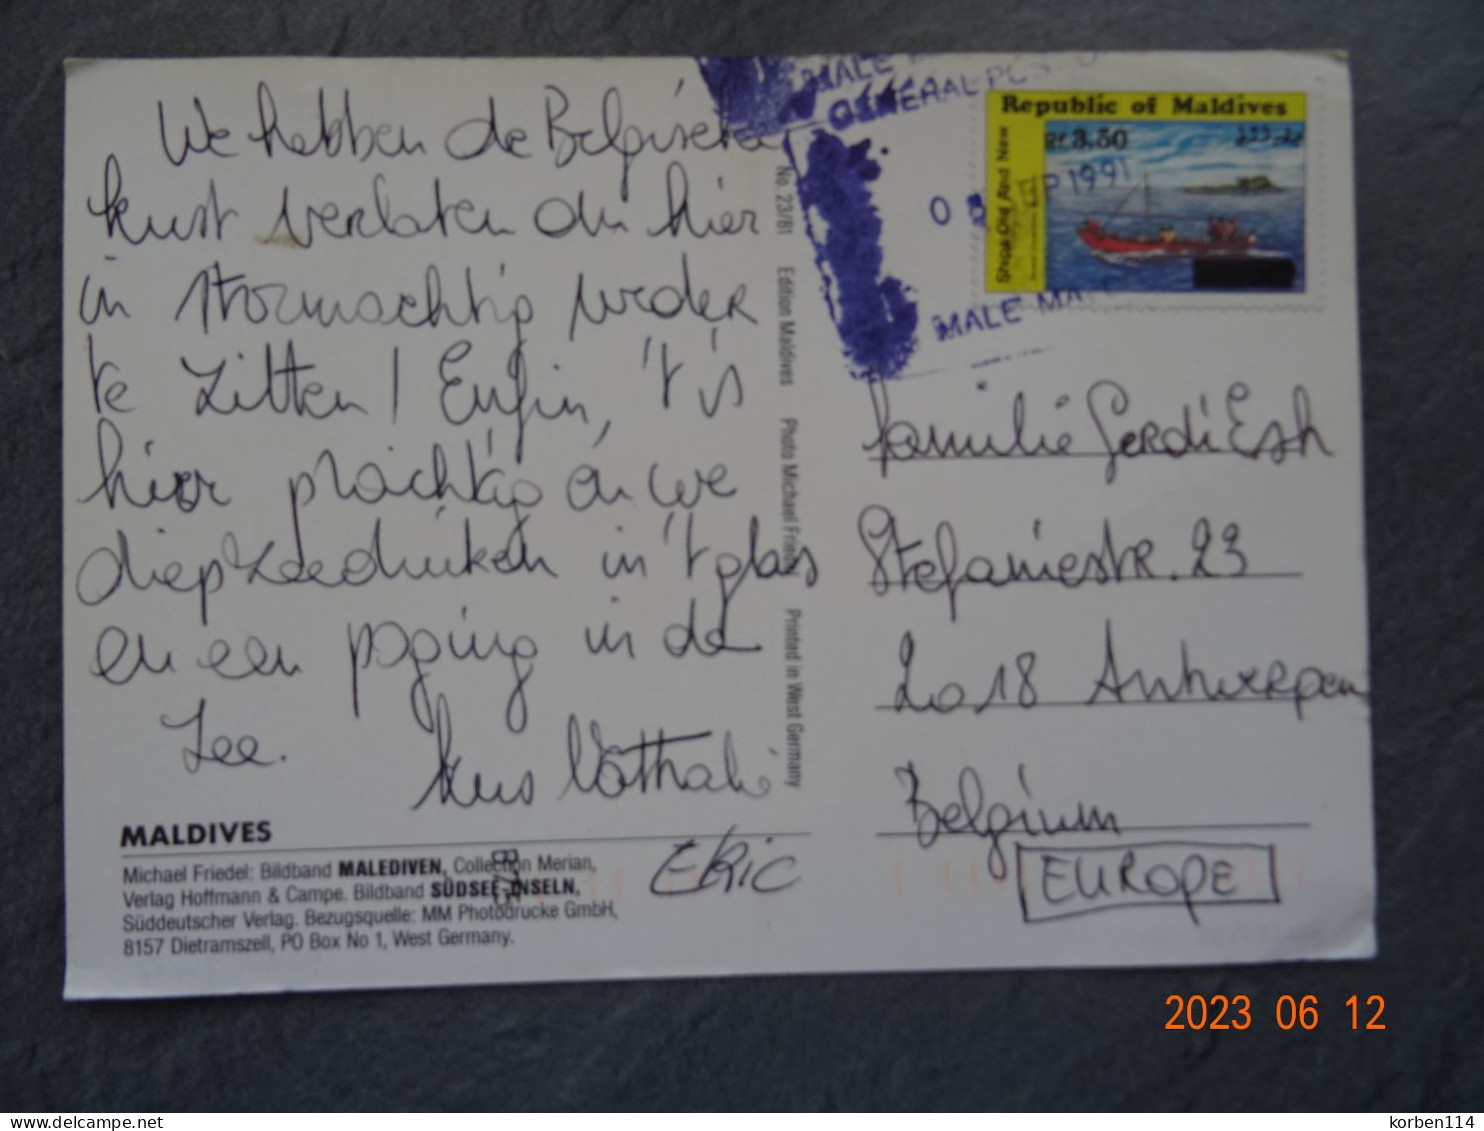 We hebben de Belgische
kust verlaten om hier
in stormachtig weder
te zitten! Enfin, 't is
hier prachtig en we
diepzeeduiken in 't glas
en een poging in de
Zee.
Kus Nathalie
Eric
MALDIVES
Michael Friedel: Bildband MALEDIVEN, Collection Merian,
Verlag Hoffmann & Campe. Bildband SÜDSEE-INSELN,
Süddeutscher Verlag. Bezugsquelle: MM Photodrucke GmbH,
8157 Dietramszell, PO Box No 1, West Germany.
No. 23/81 Edition Maldives Photo Michael Friedel Printed in West Germany
MALE
GENERAL POST
1991
MALE
Republic of Maldives
Rf.3.50
Ships Old And New
Familie Gerdi Esh
Stefaniestr. 23
2018 Antwerpen
Belgium
EUROPE
2023 06 12
korben114